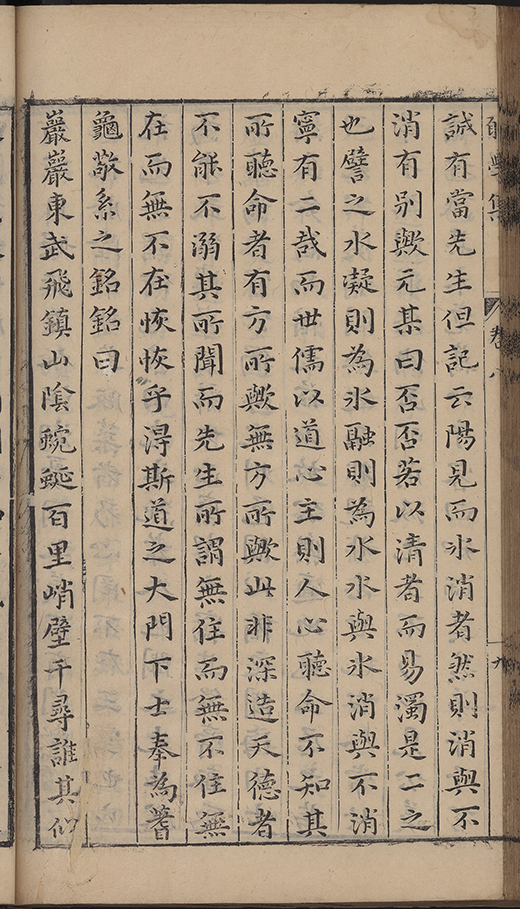 誠有當先生但記云陽見而冰消者然則消與不
消有别歟元某曰否否若以清者而易濁是二之
也譬之水凝則為冰融則為水水與冰消與不消
寧有二哉而世儒以道心主則人心聽命不知其
所聽命者有方所歟無方所歟此非深造天德者
不能不溺其所聞而先生所謂無住而無不住無
在而無不在恢恢乎淂斯道之大門下士奉為蓍
龜敬系之銘銘曰
巖巖東武飛鎮山陰蜿蜒百里峭壁千尋誰其似
集
卷八
九